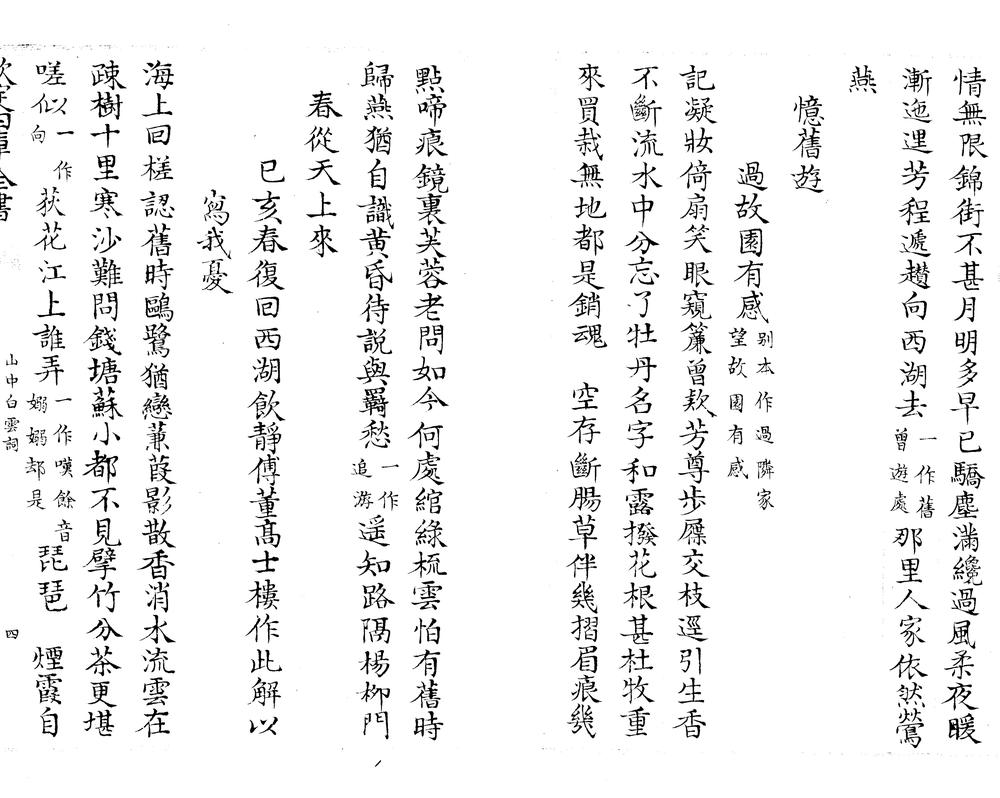 情無限錦街不甚月明多早已驕塵滿纔過風柔夜暖
漸迤邐芳程遞趲向西湖去一作舊曾遊處那里人家依然鶯
燕
憶舊遊
過故園有感别本作過隣家望故園有感
記凝妝倚扇笑眼窺簾曾款芳尊步屧交枝逕引生香
不斷流水中分忘了牡丹名字和露撥花根甚杜牧重
來買栽無地都是銷魂　空存斷腸草伴幾摺眉痕幾
點啼痕鏡裏芙蓉老問如今何處綰綠梳雲怕有舊時
歸燕猶自識黄昏待説與羇愁一作追游遥知路隔楊柳門
春從天上來
已亥春復回西湖飲靜傅董髙士樓作此解以
寫我憂
海上回槎認舊時鷗鷺猶戀蒹葭影散香消水流雲在
疎樹十里寒沙難問錢塘蘇小都不見擘竹分茶更堪
嗟似一作向荻花江上誰弄一作嘆餘音嫋嫋却是琵琶　煙霞自
欽定四庫全書
山中白雲詞
四